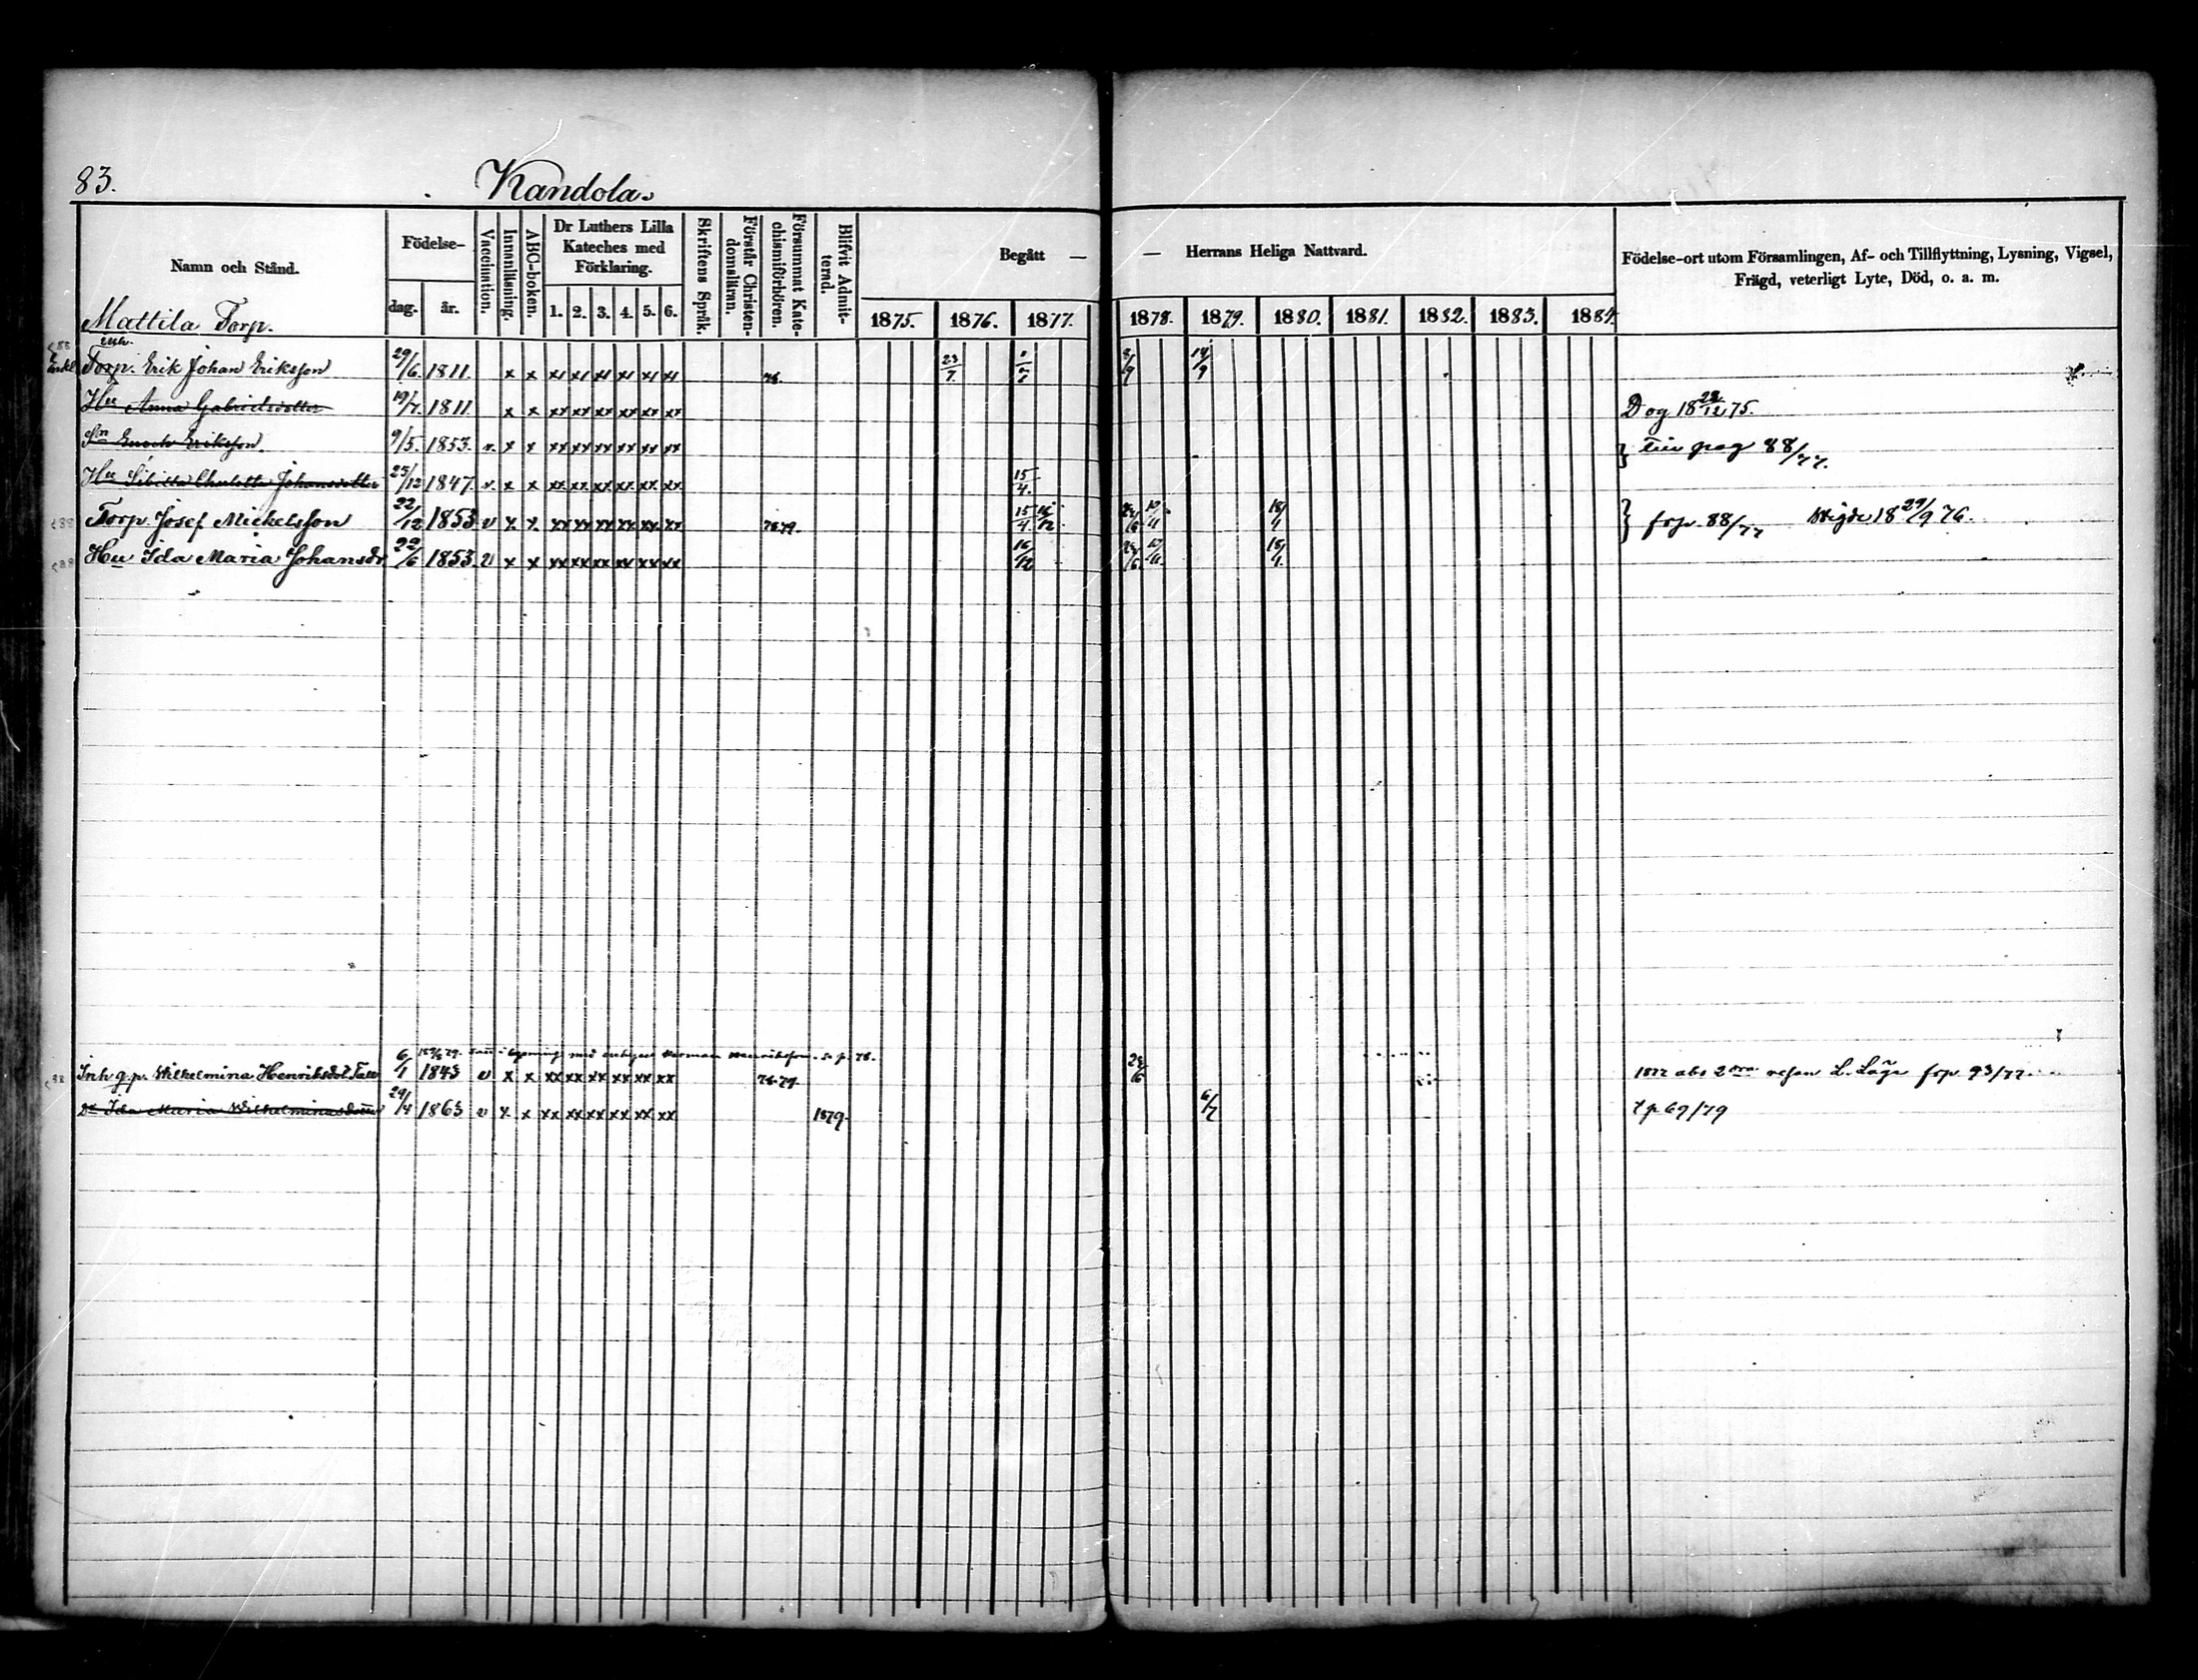 83.
Kandola.
Namn och Stånd.
Födelse-
dag.
år.
Vaccination.
Innanläsning.
ABC-boken.
Dr Luthers Lilla
Kateches med
Förklaring.
1. 2. 3. 4. 5. 6.
Skriftens Språk.
Förstår Christen-
domsläran.
Försummat Kate-
chismiförhören.
Blifvit Admit-
terad.
Begått —
— Herrans Heliga Nattvard.
1875. 1876. 1877. 1878. 1879. 1880. 1881. 1882. 1883. 1884.
Födelse-ort utom Församlingen, Af- och Tillflyttning, Lysning, Vigsel,
Frägd, veterligt Lyte, Död, o. a. m.
Mattila Torp.
Torp. Erik Johan Eriksson 29/6. 1811. x x 76. 23/7 14/9
Hu Anna Gabrielsdotter 19/7. 1811. x x xx xx xx xx xx xx Dog 18 12 75.
Sn Enoch Eriksson. 9/5. 1853. v. x x xx xx xx xx xx xx pag 88/77.
Hu Johansdotter 25/12 1847. v. x x xx xx xx xx xx xx 15/4.
Torp. Josef Mickelsson 22/12 1853 v x x xx xx xx xx xx xx 15/4. 16/12 18/1 frp. 88/77 Wigde 18 29/9 76.
Hu Ida Maria Johansdr 22/6 1853 v x x xx xx xx xx xx xx 16/12 18/1.
Inh q.p. Wilhelmina Henriksdot 6/1 1843 v x x xx xx xx xx xx xx frp 93/77
Dr Ida Maria Wilhelminasdotter 29/4 1863 v x x xx xx xx xx xx xx 1879. 6/7 tp 69/79